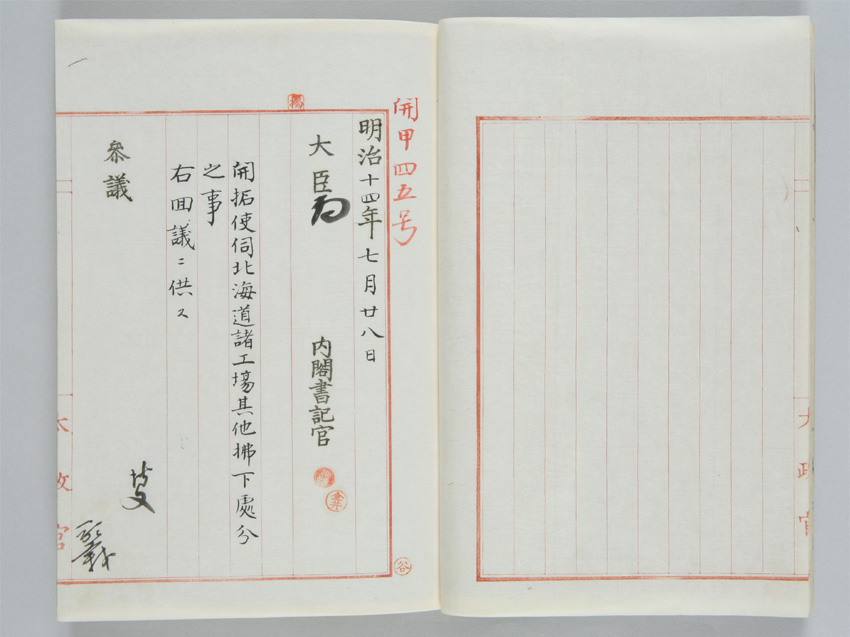 開甲四五号
明治十四年七月廿八日
大臣
内閣書記官
開拓使伺北海道諸工場其他拂下處分
之事
右回議ニ供ス
参議
谷
太政官
太政官